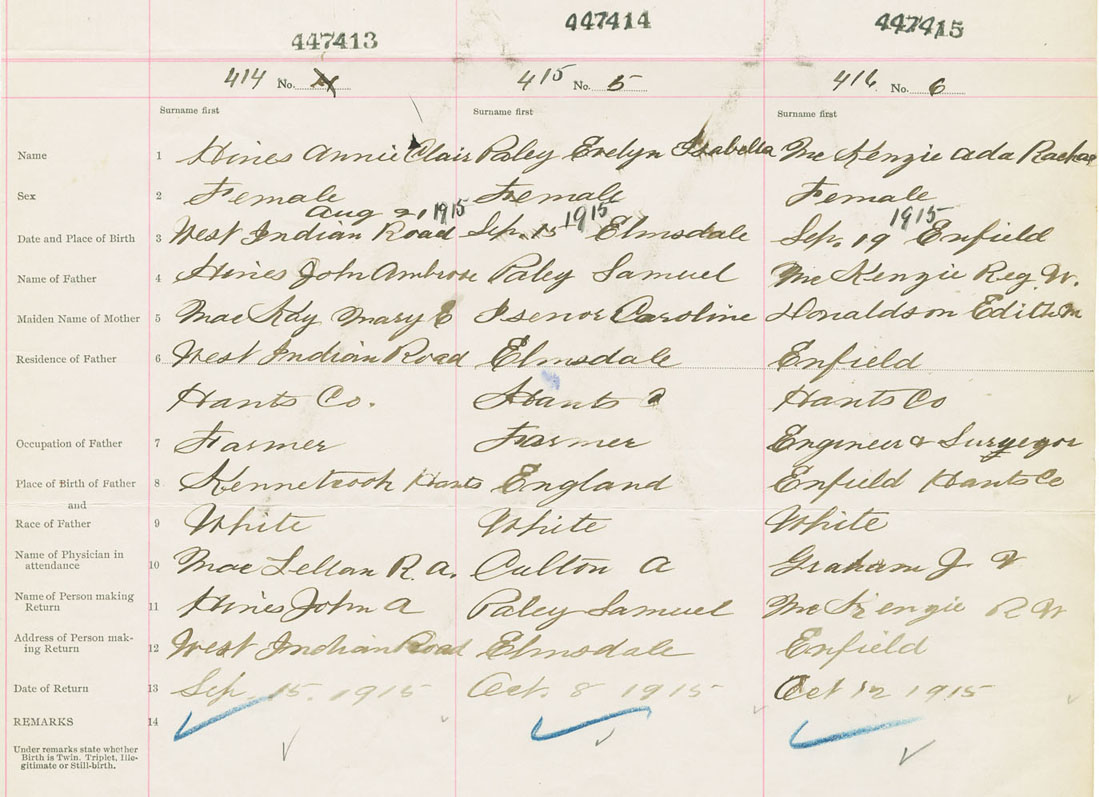 447413 447414 447415
414 No. 4 415 No. 5 416 No. 6
Surname first Surname first Surname first
Name 1 Hines Annie Clair Paley Evelyn Isabella McKenzie Ada Rachae
Sex 2 Female Female Female
Aug 21 1915 1915 1915
Date and Place of Birth 3 West Indian Road Sep. 15 Elmsdale Sep. 19 Enfield
Name of Father 4 Hines John Ambrose Paley Samuel McKenzie Reg. W.
Maiden Name of Mother 5 MacKay Mary E Isenor Caroline Donaldson Edith M
Residence of Father 6 West Indian Road Elmsdale Enfield
Hants Co. Hants Hants Co
Occupation of Father 7 Farmer Farmer Engineer & Surveyor
Place of Birth of Father 8 Kennetcook Hants England Enfield Hants Co
and
Race of Father 9 White White White
Name of Physician in
attendance 10 MacLellan R. A. Culton A Graham J
Name of Person making
Return 11 Hines John A Paley Samuel McKenzie R W
Address of Person mak-
ing Return 12 West Indian Road Elmsdale Enfield
Date of Return 13 Sep. 15. 1915 Oct. 8 1915 Oct 12 1915
REMARKS 14
Under remarks state whether
Birth is Twin. Triplet, Ille-
gitimate or Still-birth.